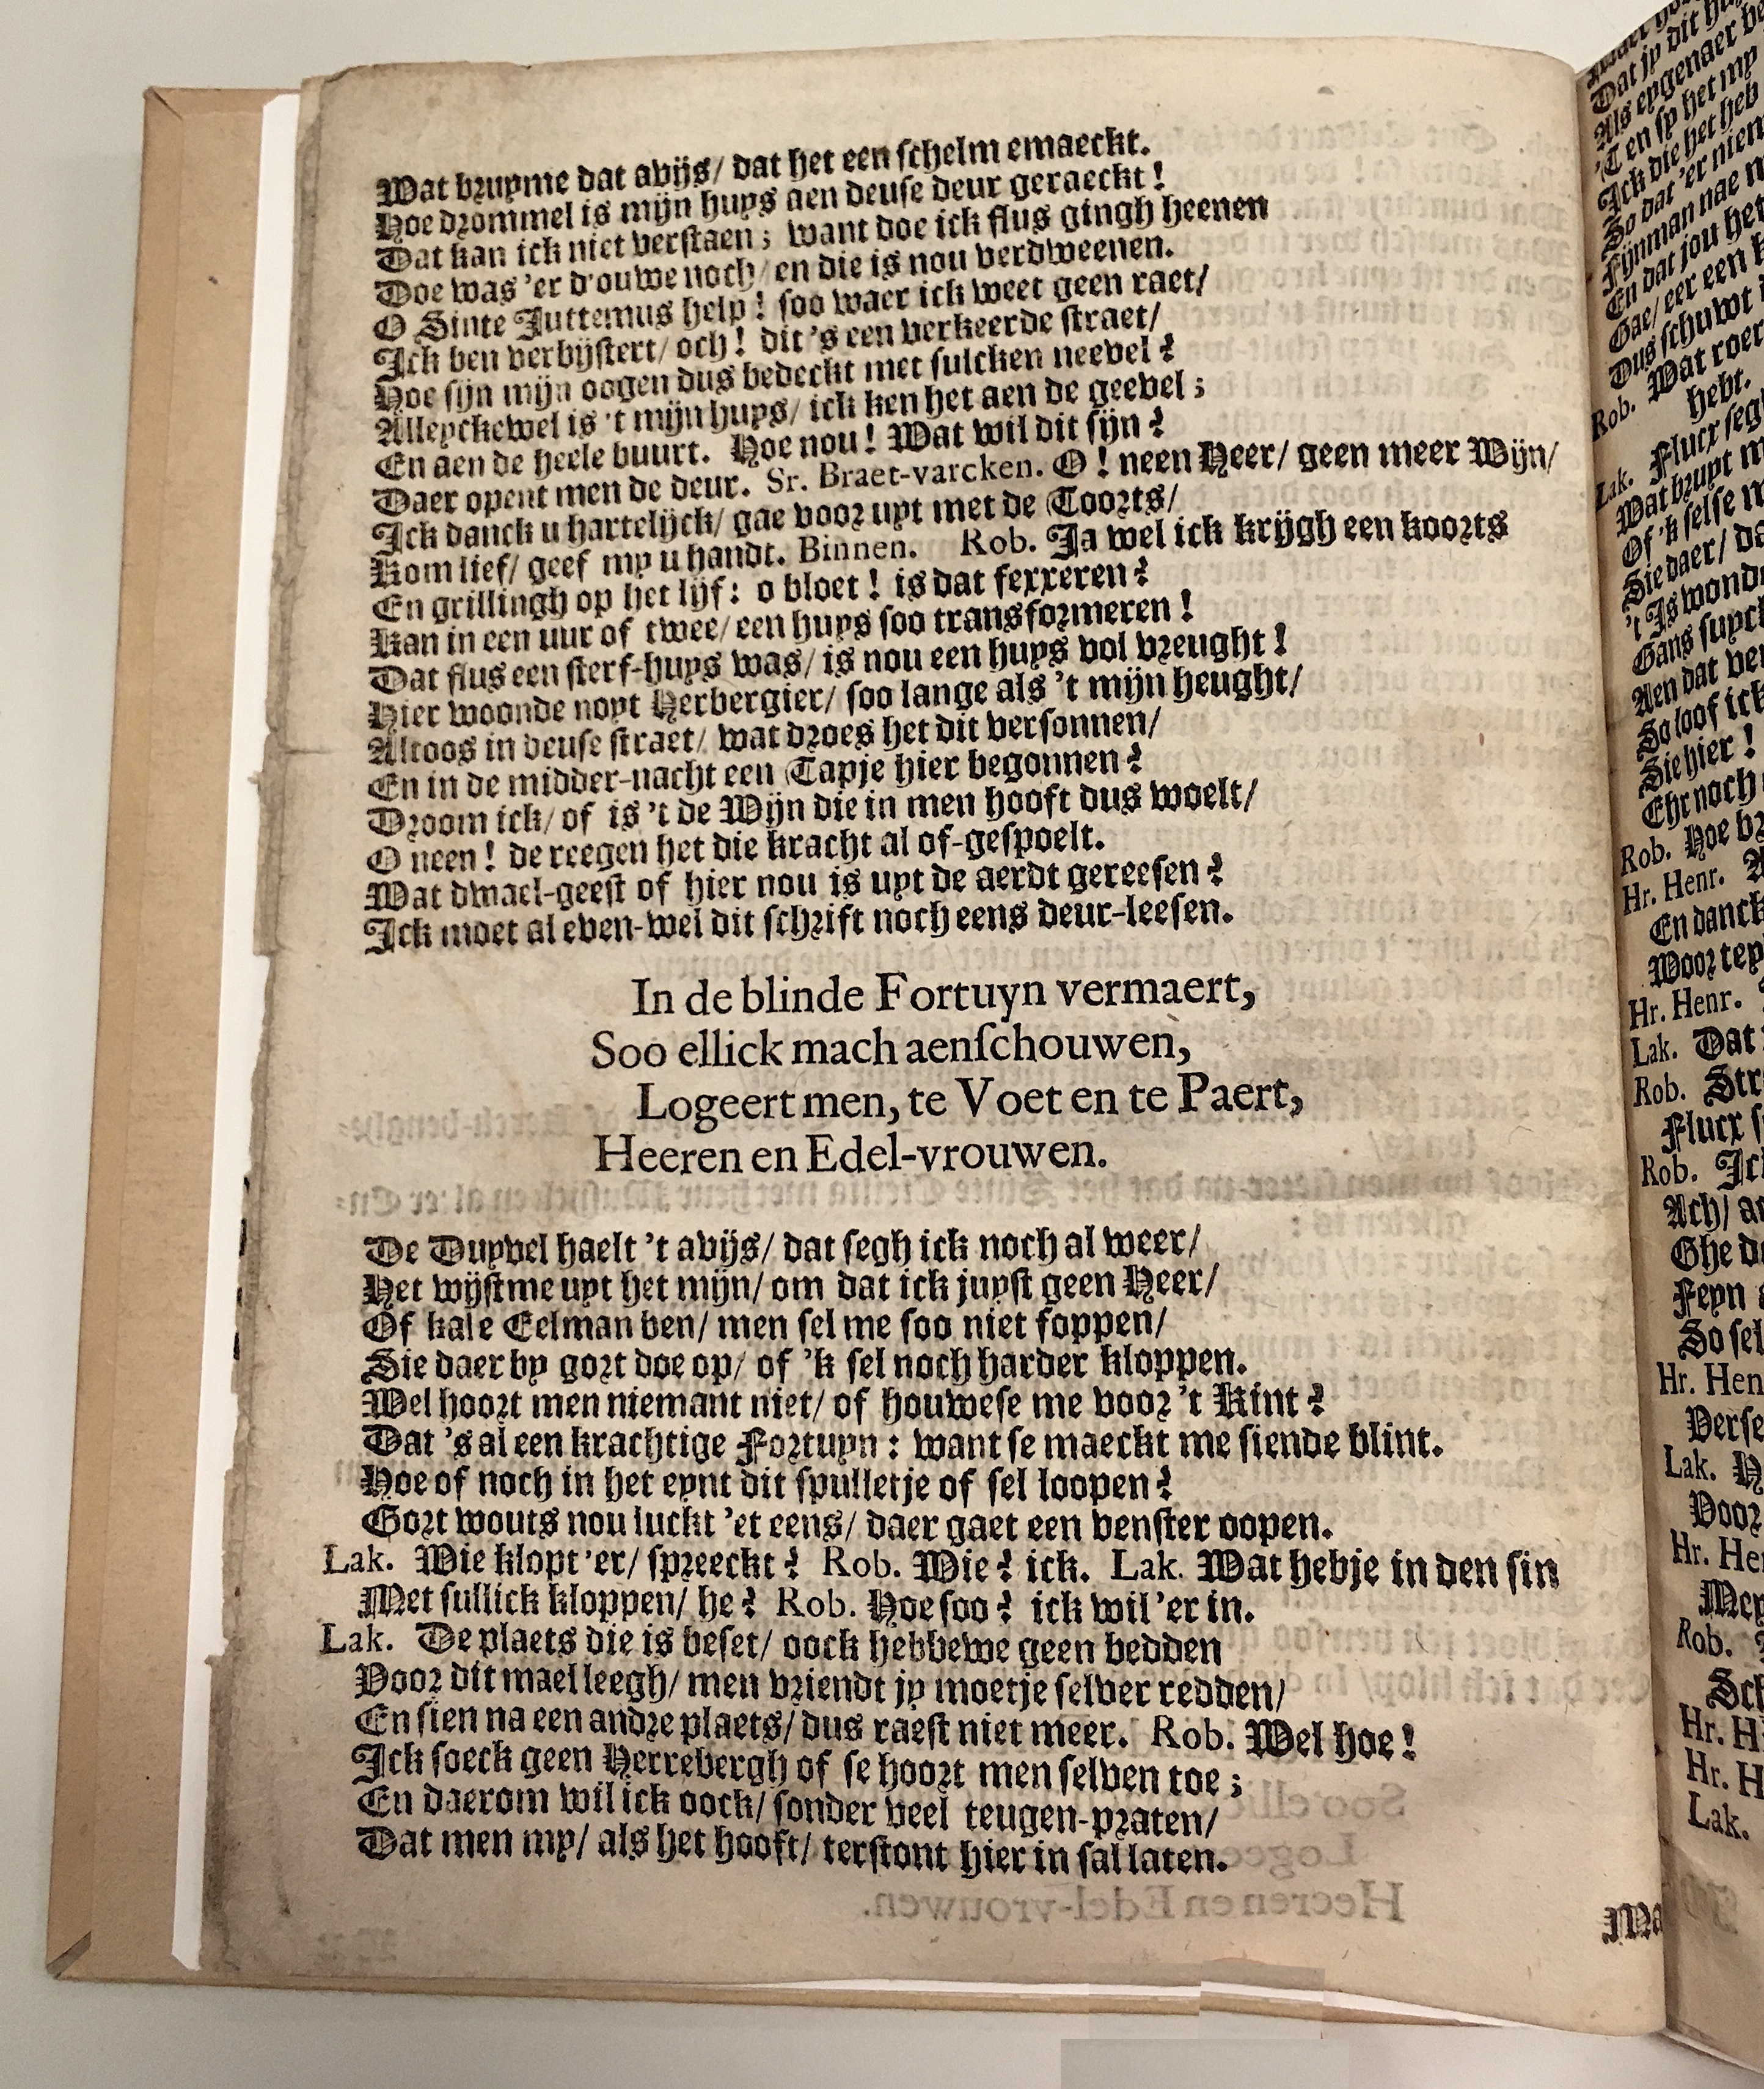 Wat bruyme dat avijs/ dat het een schelm emaeckt.
Hoe drommel is mijn huys aen deuse deur geraeckt!
Dat kan ick niet verstaen; want doe ick flus gingh heenen
Doe was 'er d'ouwe noch/ en die is nou verdweenen.
O Sinte Juttemus help! soo waer ick weet geen raet/
Ick ben verbijstert/ och! dit 's een verkeerde straet/
Hoe sijn mijn oogen dus bedeckt met sulcken neevel?
Alleyckewel is 't mijn huys/ ick ken het aen de geevel;
En aen de heele buurt. Hoe nou! Wat wil dit sijn?
Daer opent men de deur. Sr. Braet-varcken. O! neen Heer/ geen meer Wijn/
Ick danck u hartelijck/ gae voor uyt met de Toorts/
Kom lief/ geef my u handt. Binnen. Rob. Ja wel ick krijgh een koorts
En grillingh op het lijf: o bloet! is dat ferreren?
Kan in een uur of twee/ een huys soo transformeren!
Dat flus een sterf-huys was/ is nou een huys vol vreught!
Hier woonde noyt Herbergier/ soo lange als 't mijn heught/
Altoos in deuse straet/ wat droes het dit versonnen/
En in de midder-nacht een Tapje hier begonnen?
Droom ick/ of is 't de Wijn die in men hooft dus woelt/
O neen! de reegen het die kracht al of-gespoelt.
Wat dwael-geest of hier nou is uyt de aerdt gereesen?
Ick moet al even-wel dit schrift noch eens deur-leesen.
In de blinde Fortuyn vermaert,
Soo ellick mach aenschouwen,
Logeert men, te Voet en te Paert,
Heeren en Edel-vrouwen.
De Duyvel haelt 't avijs/ dat segh ick noch al weer/
Het wijstme uyt het mijn/ om dat ick juyst geen Heer/
Of kale Eelman ben/ men sel me soo niet foppen/
Sie daer by gort doe op/ of 'k sel noch harder kloppen.
Wel hoort men niemant niet/ of houwese me voor 't Kint?
Dat 's al een krachtige Fortuyn: want se maeckt me siende blint.
Hoe of noch in het eynt dit spulletje of sel loopen?
Gort wouts nou luckt 'et eens/ daer gaet een venster oopen.
Lak. Wie klopt 'er/ spreeckt? Rob. Wie? ick. Lak. Wat hebje in den sin
Met sullick kloppen/ he? Rob. Hoe soo? ick wil 'er in.
Lak. De plaets die is beset/ oock hebbewe geen bedden
Voor dit mael leegh/ men vriendt jy moetje selver redden/
En sien na een andre plaets/ dus raest niet meer. Rob. Wel hoe!
Ick soeck geen Herrebergh of se hoort men selven toe;
En daerom wil ick oock/ sonder veel teugen-praten/
Dat men my/ als het hooft/ terstont hier in sal laten.
Dat jy dit
Als eygenaer
'T en sy het my
Ick die het heb
So dat 'er
Fijnman nae
En dat jou het
Gae/ eer een
Dus schuwt
Rob. Wat roer
hebt.
Lak. Flucx
Wat bruyt
Of 'k selse
Sie daer/
't Is
Gans
Aen dat
So loof ick
Sie hier!
Ehr noch
Rob. Hoe
Hr. Henr.
En danck
Hr. Henr.
Lak. Dat
Rob.
Flucx
Rob. Ick
Ach/
Ghe
Feyn
So sel
Hr. Hen
Lak.
Voor
Rob.
Lak.
Ma